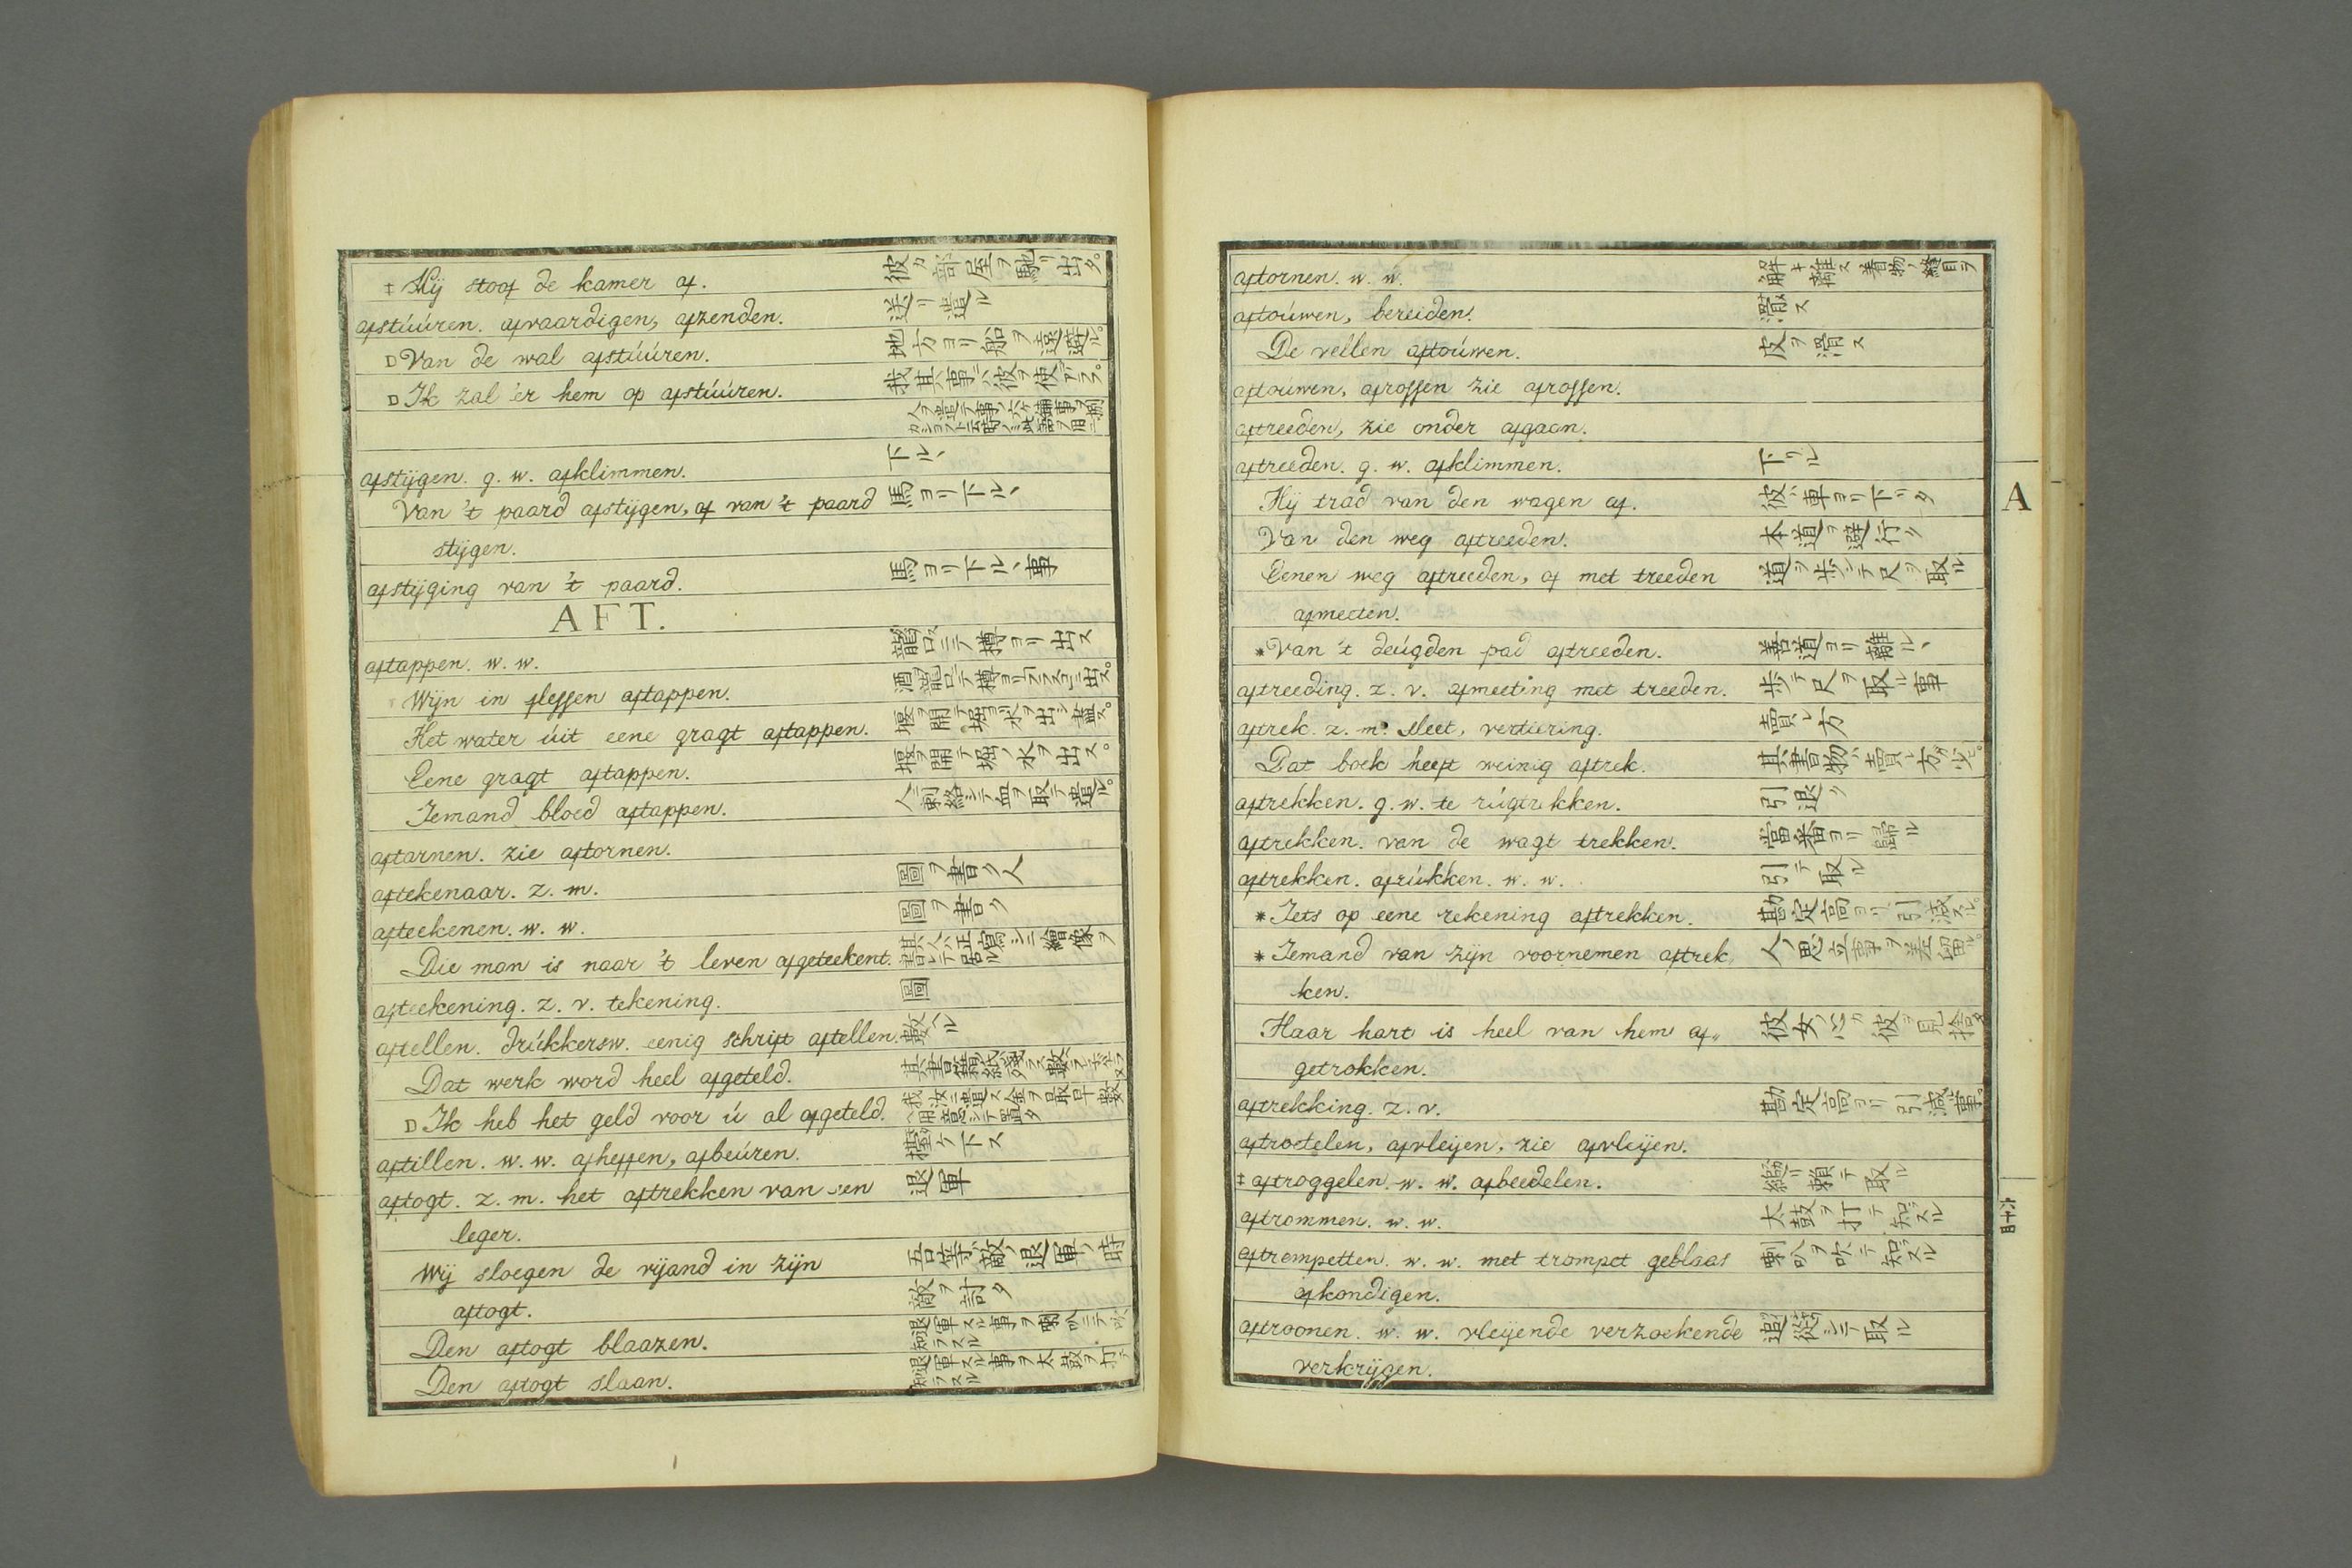 ‡ Hij stoof de kamer af. 彼カ部屋ヲ馳リ出タ。
afstúúren. afvaardigen, afzenden. 送リ遣ル
D Van de wal afstúúren. 地方ヨリ船ヲ遠避ル。
D Ik zal 'er hem op afstúúren. 我其事ニ彼ヲ使デアラフ。
afstijgen. g. w. afklimmen. 下ル、
Van 't paard afstijgen, of van 't paard 馬ヨリ下ル、
stijgen.
afstijging van 't paard. 馬ヨリ下ル、事
AFT.
aftappen. w. w. 龍口ニテ樽ヨリ出ス
Wijn in flessen aftappen.
Het water úit eene gragt aftappen.
Eene gragt aftappen. 堰ヲ開テ堀ノ水ヲ出ス。
Iemand bloed aftappen. 人ニ刺絡シテ血ヲ取テ遣ル。
aftarnen. zie aftornen.
aftekenaar. z. m. 圖ヲ書ク人
afteekenen. w. w. 圖ヲ書ク
Die man is naar 't leven afgeteekent.
afteekening. z. v. tekening. 圖
aftellen. drúkkersw. eenig schrift aftellen. 數ヘル
Dat werk word heel afgeteld.
D Ik heb het geld voor ú al afgeteld.
aftillen. w. w. afheffen, afbeúren.
aftogt. z. m. het aftrekken van een 退軍
leger.
Wij sloegen de vijand in zijn 吾等敵ノ退軍ノ時
aftogt. 敵ヲ討タ
Den aftogt blaazen. 退軍スル事ヲ喇叭ニテ吹 知ラスル
Den aftogt slaan. 退軍スル事ヲ太鼓ヲ打テ 知ラスル
aftornen. w. w. 解キ離ス 着物ノ縫目ヲ
aftoúwen, bereiden.
De vellen aftoúwen.
aftoúwen, afrossen zie afrossen.
aftreeden, zie onder afgaan.
aftreeden. g. w. afklimmen. 下リル
Hij trad van den wagen af. 彼ハ車ヨリ下リタ
Van den weg aftreeden. 本道ヲ避行ク
Eenen weg aftreeden, of met treeden 道ヲ歩シテ尺ヲ取ル
afmeeten.
* Van 't deúgden pad aftreeden. 善道ヨリ離ル、
aftreeding. z. v. afmeeting met treeden. 歩テ尺ヲ取ル事
aftrek. z. m. sleet, vertiering. 賣レ方
Dat boek heeft weinig aftrek. 其書物ハ賣レ方カ少ヒ。
aftrekken. g. w. te rúgtrekken. 引退ク
aftrekken. van de wagt trekken. 當番ヨリ歸ル
aftrekken. afrúkken. w. w. 引テ取ル
* Iets op eene rekening aftrekken. 勘定高ヨリ引減スル。
* Iemand van zijn voornemen aftrek 人ノ思立事ヲ差留ル。
ken.
Haar hart is heel van hem af„ 彼女ノ心カ彼ヲ見捨タ
getrokken.
aftrekking. z. v. 勘定高ヨリ引減事。
aftroetelen, afvleijen, zie afvleijen.
‡ aftroggelen. w. w. afbeedelen.
aftrommen. w. w. 太鼓ヲ打テ知ラスル
aftrompetten. w. w. met trompet geblaas 喇叭ヲ吹テ知ラスル
afkondigen.
aftroonen. w. w. vleijende verzoekende 追從シテ取ル
verkrijgen.
A